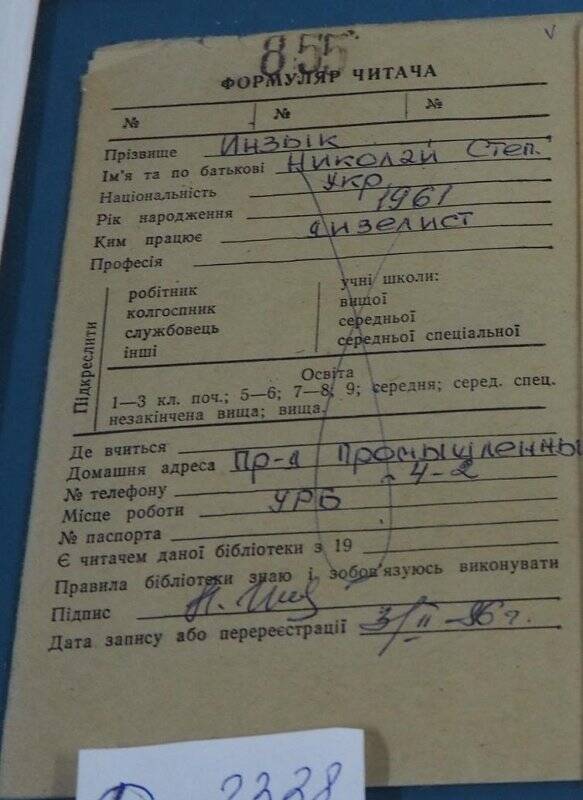 855
ФОРМУЛЯР ЧИТАЧА
№ № №
Прізвище Инзыік
Ім'я та по батькові Николай Степ.
Національність Укр
Рік народження 1961
Ким працює дизелист
Професія
Підкреслити
робітник
колгоспник
службовець
інші
учні школи:
вищої
середньої
середньої спеціальної
Освіта
1—3 кл. поч.; 5—6; 7—8; 9; середня; серед. спец.
незакінчена вища; вища.
Де вчиться
Домашня адреса пр-д Промышленны
4-2
№ телефону
Місце роботи УРБ
№ паспорта
Є читачем даної бібліотеки з 19
Правила бібліотеки знаю і зобов'язуюсь виконувати
Підпис
Дата запису або перереєстрації 3/II-86 г.
2238